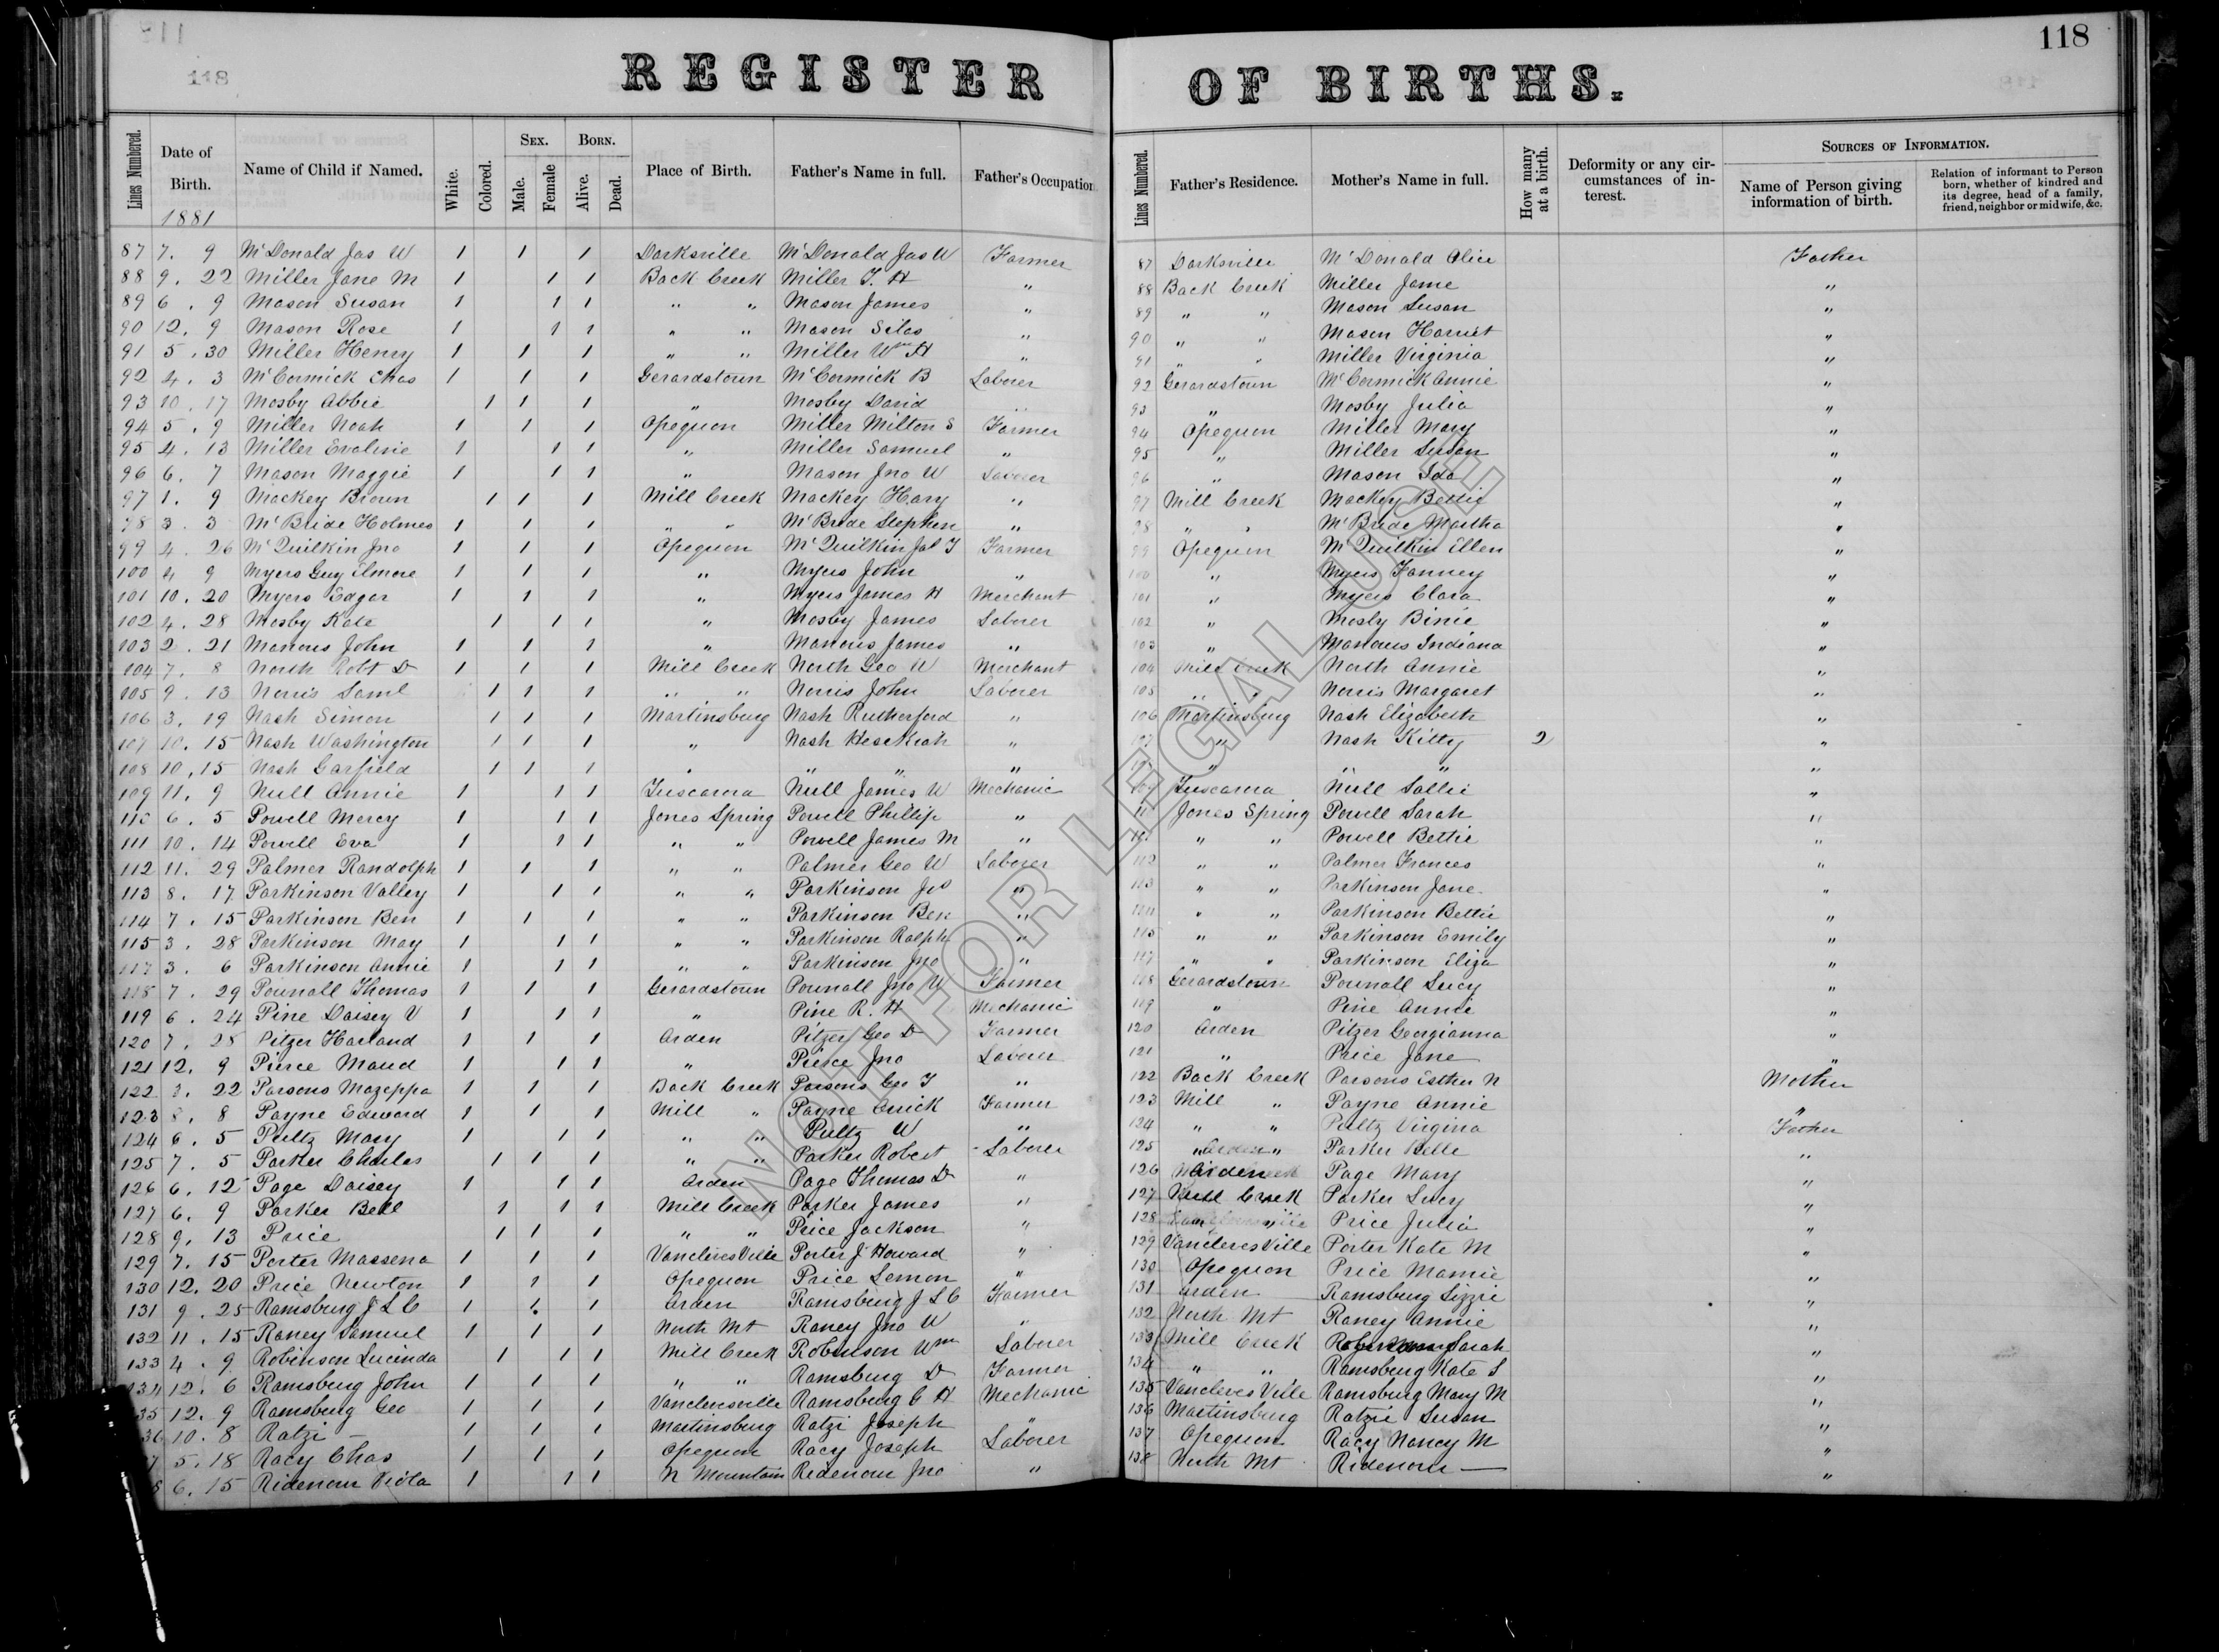 118
REGISTER OF BIRTHS.
Lines Numbered. Date of Birth. Name of Child if Named. White. Colored. Sex. Male. Female Born. Alive. Dead. Place of Birth. Father's Name in full. Father's Occupation Lines Numbered. Father's Residence. Mother's Name in full. How many at a birth. Deformity or any circumstances of interest. Sources of Information. Name of Person giving information of birth. Relation of informant to Person born, whether of kindred and its degree, head of a family, friend, neighbor or midwife, &c.
1881
87 7. 9 McDonald Jas W 1 1 1 Darksville McDonald Jas W Farmer 87 Darksville McDonald Alice Father
88 9. 22 Miller Jane M 1 1 1 Back Creek Miller T. H " 88 Back Creek Miller Jame "
89 6. 9 Mason Susan 1 1 1 " " Mason James " 89 " " Mason Susan "
90 12. 9 Mason Rose 1 1 1 " " Mason Silas " 90 " " Mason Harriet "
91 5. 30 Miller Henry 1 1 1 " " Miller Wm H " 91 " " Miller Virginia "
92 4. 3 McCormick Chas 1 1 1 Gerardstown McCormick B Laborer 92 Gerardstown McCormick Annie "
93 10. 17 Mosby Abbie 1 1 1 " Mosby David " 93 " Mosby Julia "
94 5. 9 Miller Noah 1 1 1 Opequon Miller Milton S Farmer 94 Opequon Miller Mary "
95 4. 13 Miller Evaline 1 1 1 " Miller Samuel " 95 " Miller Susan "
96 6. 7 Mason Maggie 1 1 1 " Mason Jno W Laborer 96 " Mason Ida "
97 1. 9 Mackey Brown 1 1 1 Mill Creek Mackey Hary " 97 Mill Creek Mackey Bettie "
98 3. 3 McBride Holmes 1 1 1 " " McBride Stephen " 98 " " McBride Martha "
99 4. 26 McQuilkin Jno 1 1 1 Opequon McQuilkin Jas T Farmer 99 Opequon McQuilkin Ellen "
100 4 9 Myers Guy Elmore 1 1 1 " Myers John " 100 " Myers Fanney "
101 10. 20 Myers Edgar 1 1 1 " Myers James H Merchant 101 " Myers Clara "
102 4. 28 Mosby Kate 1 1 1 " Mosby James Laborer 102 " Mosby Binie "
103 2. 21 Manous John 1 1 1 " Manous James " 103 " Manous Indiana "
104 7. 8 North Robt D 1 1 1 Mill Creek North Geo W Merchant 104 Mill Creek North Annie "
105 9. 13 Norris Saml 1 1 1 " " Norris John Laborer 105 " " Norris Margaret "
106 3. 19 Nash Simon 1 1 1 Martinsburg Nash Rutherford " 106 Martinsburg Nash Elizabeth "
107 10. 15 Nash Washington 1 1 1 " Nash Hesekiah " 107 " Nash Kitty 2 "
108 10, 15 Nash Garfield 1 1 1 " " " " 108 " " " "
109 11. 9 Null Annie 1 1 1 Tuscarora Null James W Mechanic 109 Tuscarora Null Sallie "
110 6. 5 Powell Mercy 1 1 1 Jones Spring Powell Phillip " 110 Jones Spring Powell Sarah "
111 10. 14 Powell Eva 1 1 1 " " Powell James M " 111 " " Powell Bettie "
112 11. 29 Palmer Randolph 1 1 1 " " Palmer Geo W Laborer 112 " " Palmer Frances "
113 8. 17 Parkinson Valley 1 1 1 " " Parkinson Jas " 113 " " Parkinson Jane "
114 7. 15 Parkinson Ben 1 1 1 " " Parkinson Ben " 114 " " Parkinson Bettie "
115 3. 28 Parkinson May 1 1 1 " " Parkinson Ralph " 115 " " Parkinson Emily "
117 3. 6 Parkinson Annie 1 1 1 " " Parkinson Jno " 117 " " Parkinson Eliza "
118 7. 29 Pownall Thomas 1 1 1 Gerardstown Pownall Jno W Farmer 118 Gerardstown Pownall Lucy "
119 6. 24 Pine Daisey V 1 1 1 " Pine R. H Mechanic 119 " Pine Annie "
120 7. 28 Pitzer Harland 1 1 1 Arden Pitzer Geo D Farmer 120 Arden Pitzer Georgianna "
121 12. 9 Pierce Maud 1 1 1 " Pierce Jno Laborer 121 " Price Jane "
122 3. 22 Parsons Mazeppa 1 1 1 Back Creek Parsons Geo T " 122 Back Creek Parsons Esther N Mother
123 8. 8 Payne Edward 1 1 1 Mill " Payne Quick Farmer 123 Mill " Payne Annie "
124 6. 5 Pultz Mary 1 1 1 " " Pultz W " 124 " " Pultz Virgina Father
125 7. 5 Parker Charles 1 1 1 " " Parker Robert Laborer 125 " " Parker Belle "
126 6. 12 Page Daisey 1 1 1 Arden Page Thomas D " 126 Arden Page Mary "
127 6. 9 Parker Bell 1 1 1 Mill Creek Parker James " 127 Mill Creek Parker Lucy "
128 9. 13 Price 1 1 1 " " Price Jackson " 128 " Price Julia "
129 7. 15 Porter Massena 1 1 1 VancleresVille Porter J Howard " 129 VancleresVille Porter Kate M "
130 12. 20 Price Newton 1 1 1 Opequon Price Lemon " 130 Opequon Price Mamie "
131 9. 25 Ramsburg J L C 1 1 1 Arden Ramsburg J L C Farmer 131 Arden Ramsburg Lizzie "
132 11. 15 Raney Samuel 1 1 1 North Mt Raney Jno W " 132 North Mt Raney Annie "
133 4. 9 Robinson Lucinda 1 1 1 Mill Creek Robinson Wm Laborer 133 Mill Creek Sarah "
134 12. 6 Ramsburg John 1 1 1 " " Ramsburg D Farmer 134 " " Ramsburg Kate S "
35 12. 9 Ramsburg Geo 1 1 1 Vanclevesville Ramsburg C H Mechanic 135 VancleresVille Ramsburg Mary M "
36 10. 8 Ratzi — 1 1 1 Martinsburg Ratzi Joseph " 136 Martinsburg Ratzie Susan "
7 5. 18 Racy Chas 1 1 1 Opequon Racy Joseph Laborer 137 Opequon Racy Nancy M "
8 6. 15 Ridenour Viola 1 1 1 N Mountain Ridenour Jno " 138 North Mt Ridenour — "
NOT FOR LEGAL USE